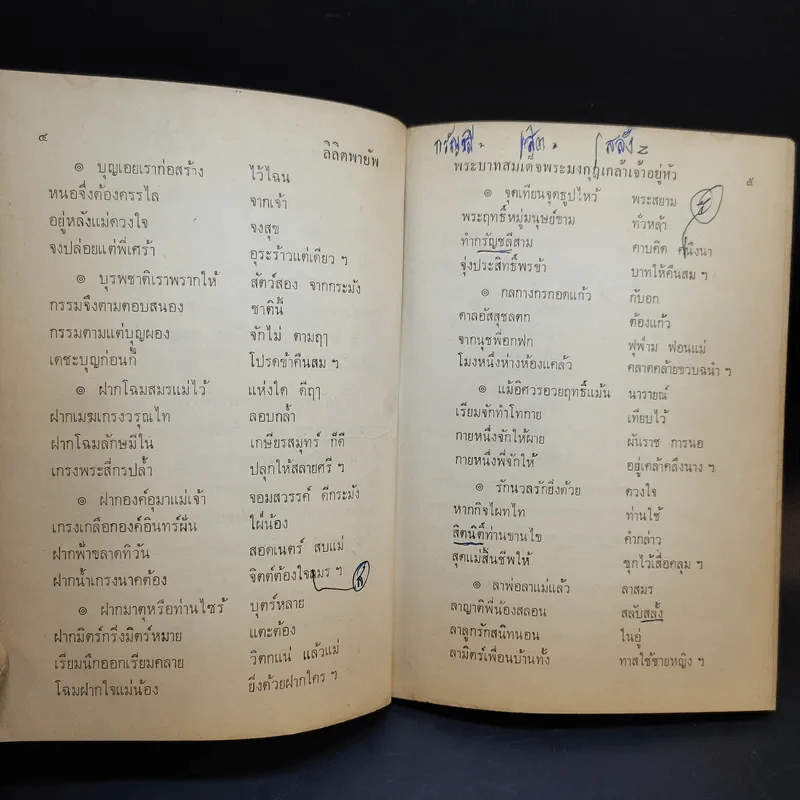 ๔
ลิลิตพายัพ
๏ บุญเอยเราก่อสร้าง ไว้ไฉน
หนอจึ่งต้องครรไล จากเจ้า
อยู่หลังแม่ดวงใจ จงสุข
จงปล่อยแต่พี่เศร้า อุระร้าวแต่เดียว ฯ
๏ บุรพชาติเราพรากให้ สัตว์สอง จากกระมัง
กรรมจึ่งตามตอบสนอง ชาตินี้
กรรมตามแต่บุญผอง จักไม่ ตามฤๅ
เดชะบุญก่อนกี้ โปรดข้าคืนสม ฯ
๏ ฝากโฉมสมรแม่ไว้ แห่งใด ดีฤๅ
ฝากเมฆเกรงวรุณไท ลอบกล้ำ
ฝากโฉมลักษมีใน เกษียรสมุทร์ ก็ดี
เกรงพระสี่กรปล้ำ ปลุกให้สลายศรี ฯ
๏ ฝากองค์อุมาแม่เจ้า จอมสวรรค์ ดีกระมัง
เกรงเกลือกองค์อินทร์ผัน ใฝ่น้อง
ฝากฟ้าขลาดทิวัน สอดเนตร์ สบแม่
ฝากน้ำเกรงนาคต้อง จิตต์ต้องใจสมร ฯ
๏ ฝากมาตุหรือท่านไซร้ บุตร์หลาย
ฝากมิตร์กริ่งมิตร์หมาย แตะต้อง
เรียมนึกออกเรียมคลาย วิตกแน่ แล้วแม่
โฉมฝากใจแม่น้อง ยิ่งด้วยฝากใคร ฯ
กรัญชลี - สิต - สลั้ง
พระบาทสมเด็จพระมงกุฎเกล้าเจ้าอยู่หัว
๕
๏ จุดเทียนจุดธูปไหว้ พระสยาม
พระฤทธิ์หมู่มนุษย์ขาม ทั่วหล้า
ทำกรัญชลีสาม คาบคิด คนึงนา
จุ่งประสิทธิ์พรข้า บาทให้คืนสม ฯ
๏ กลกางกรกอดแก้ว กับอก
ดาลอัสสุชลตก ต้องแก้ว
จากนุชพี่อกฟก ฟุฟ่าม ฟอนแม่
โมงหนึ่งห่างห้องแคล้ว คลาดคล้ายขวบฉนำ ฯ
๏ แม้อิศวรอวยฤทธิ์แม้น นารายณ์
เรียมจักทำโทกาย เทียบไว้
กายหนึ่งจักให้ผาย ผันราช การนอ
กายหนึ่งพี่จักให้ อยู่เคล้าคลึงนาง ฯ
๏ รักนวลรักยิ่งด้วย ดวงใจ
หากกิจไผทไท ท่านใช้
สิตนิตี้ท่านขานไข คำกล่าว
สุดแม่สิ้นชีพให้ ซุกไว้เสื่อคลุม ฯ
๏ ลาพ่อลาแม่แล้ว ลาสมร
ลาญาติพี่น้องสลอน สลับสลั้ง
ลาลูกรักสนิทนอน ในอู่
ลามิตร์เพื่อนบ้านทั้ง ทาสใช้ชายหญิง ฯ